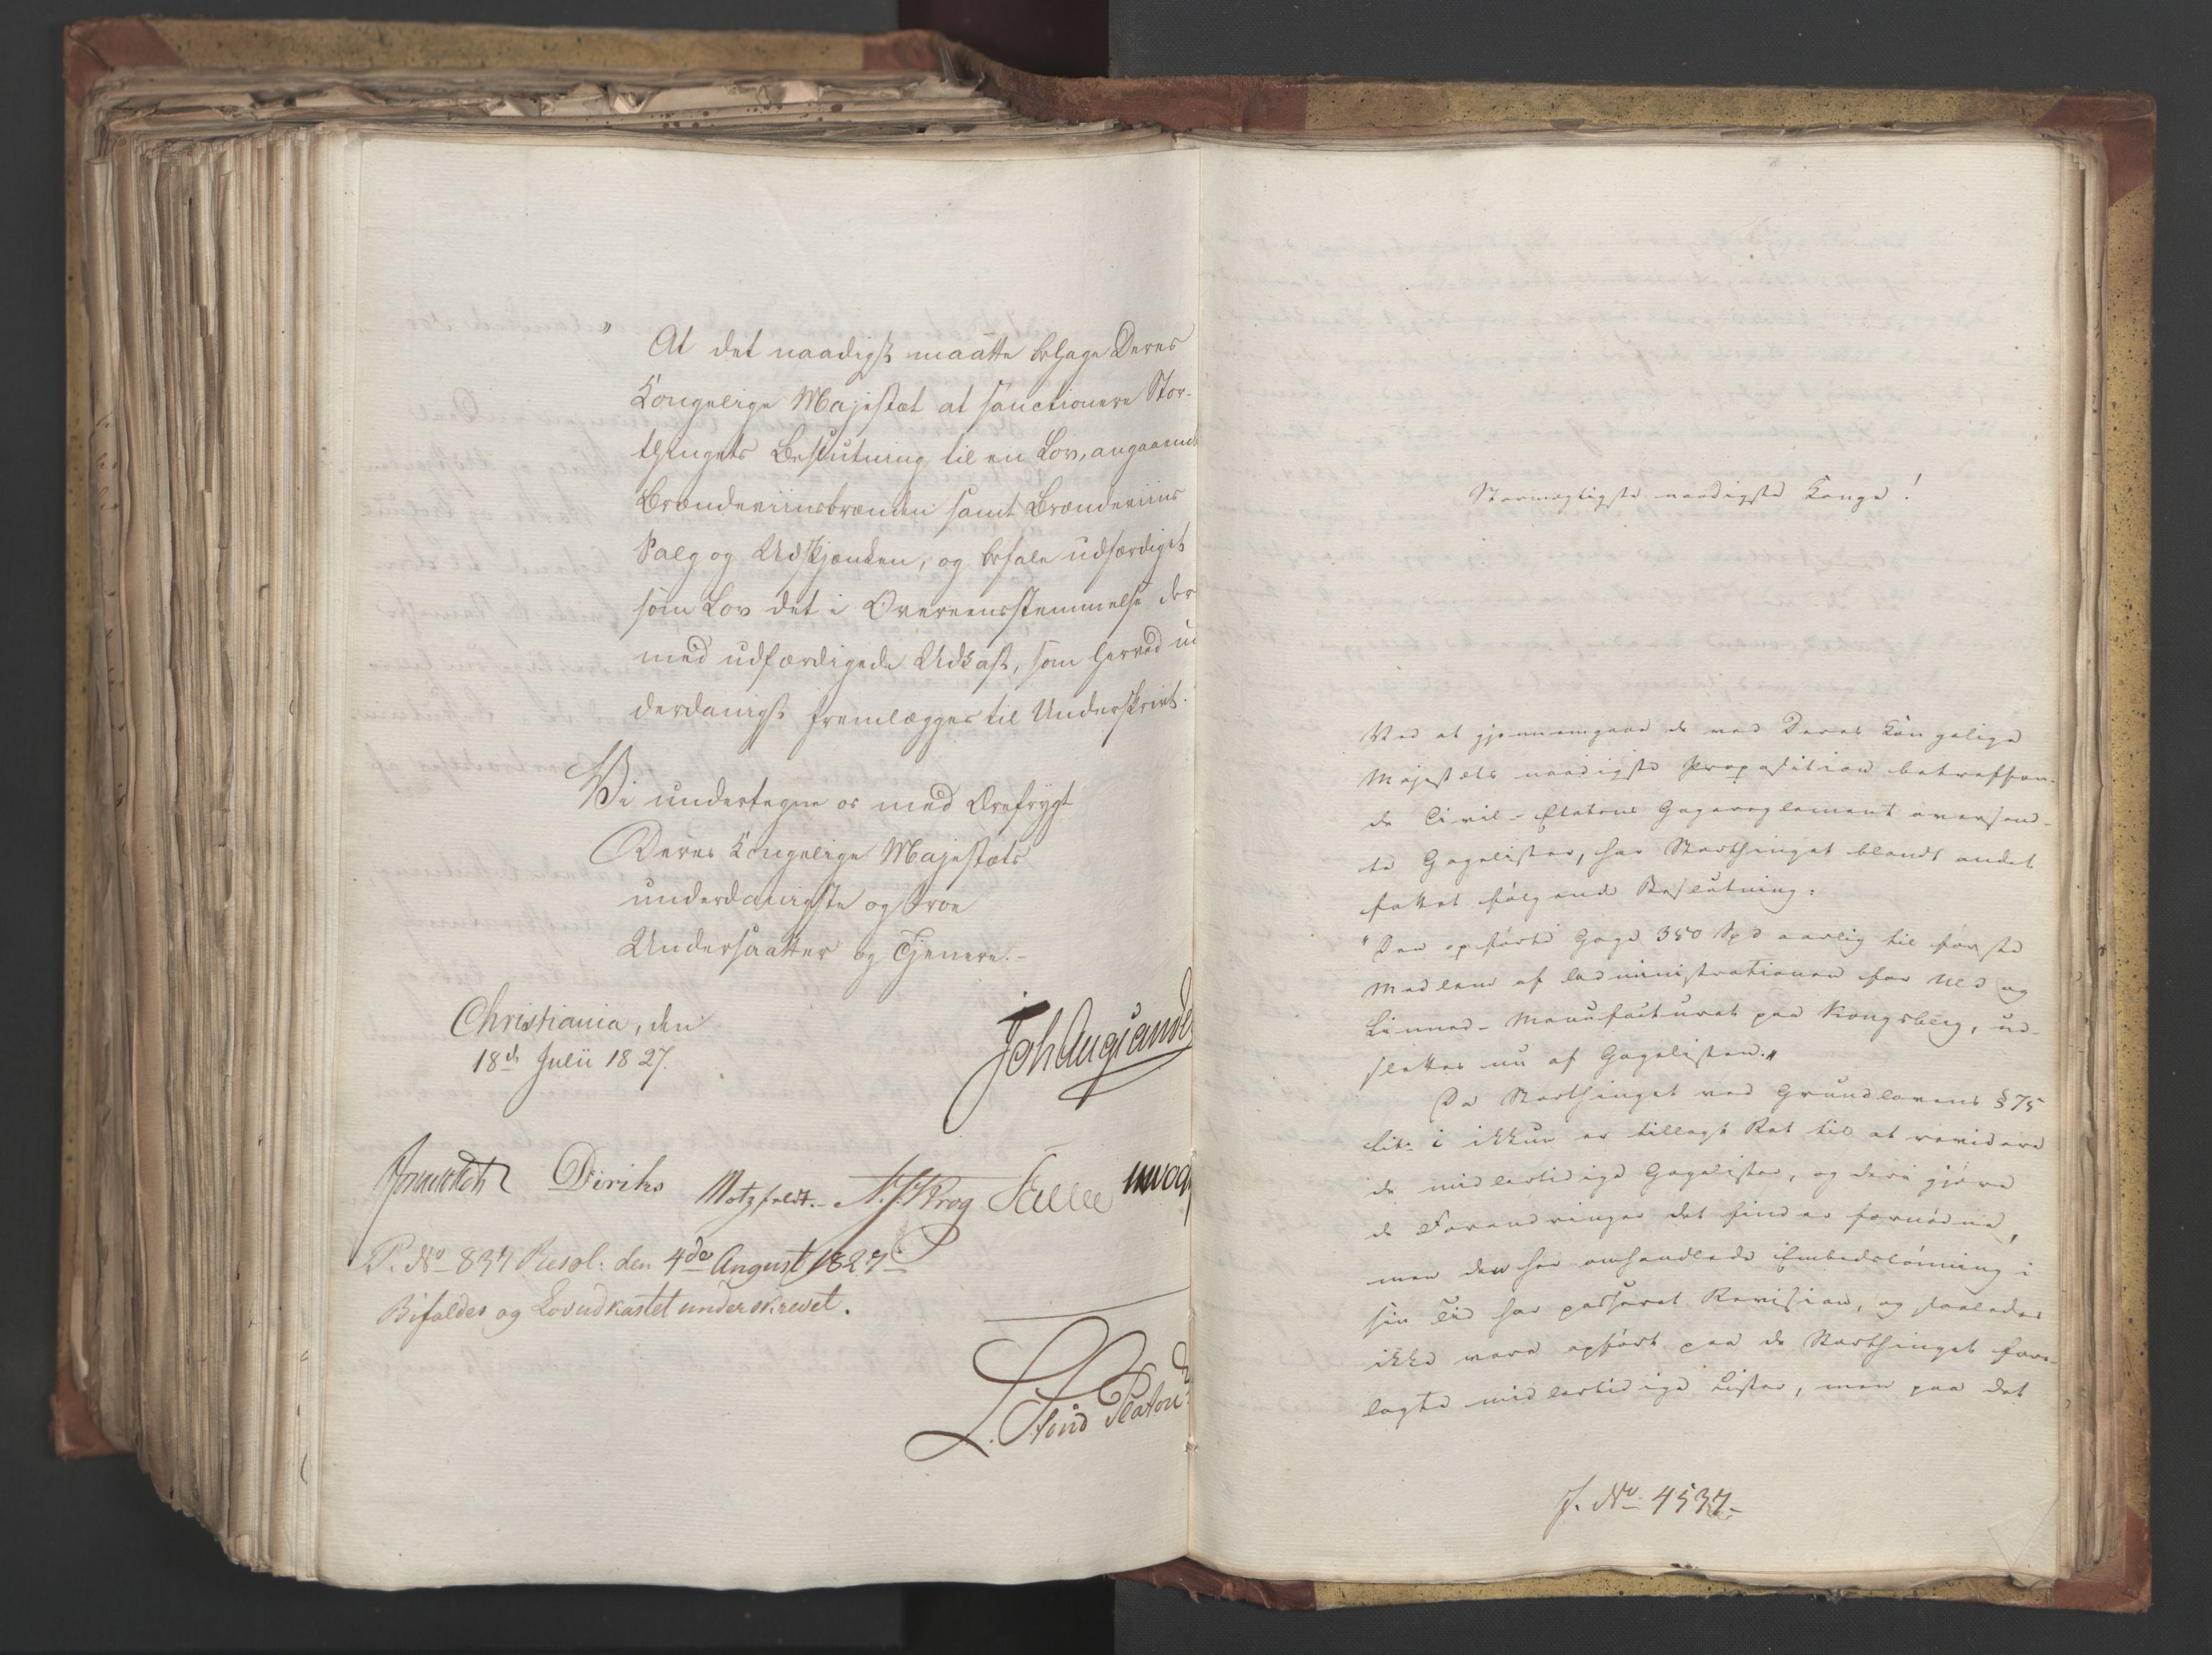 " At det naadigst maatte behage Deres
Kongelige Majestæt at sanctionere Stor-
thingets Beslutning til en Lov, angaaende
Brændeviinsbrænden samt Brændeviins
Salg og Udskjænken, og befale udfærdiget
som Lov det i Overeensstemmelse der
med udfærdigede Udkast, som herved un
derdanigst fremlægges til Underskrivt.
Vi undertegne os med Ærefrygt
Deres Kongelige Majestæts
underdanigste og troe
Undersaatter og Tjenere.-
Christiania, den
18de Julii 1827.
Joh Aug Sande
Diriks Motzfeldt.-
P. No 837 Resol: den 4de August 1827
Bifaldes og Lovudkastet underskrevet.
L. Stoud Platou
Stormægtigste naadigste Konge!
Ved at gjennemgaae de med Deres Kongelige
Majestæts naadigste Proposition betreffen-
de Civil-Etatens Gagereglement oversend-
te Gagelister, har Storthinget blandt andet
fattet følgende Beslutning:
"Den opførte Gage 350 Spd aarlig til første
Medlem af Administrationen for Uld og
Linned-Manufacturet paa Kongsberg, ud-
slettes nu af Gagelisten."
Da Storthinget ved Grundlovens § 75
Lit: i ikkun er tillagt Ret til at revidere
de midlertidige Gagelister, og deri gjøre
de Forandringer det finder fornødne,
men den her omhandlede Embedslønning i
sin Tid har passeret Revision, og saaledes
ikke være opført paa de Storthinget fore-
lagte midlertidige Lister, men paa det
J. No 4537.-